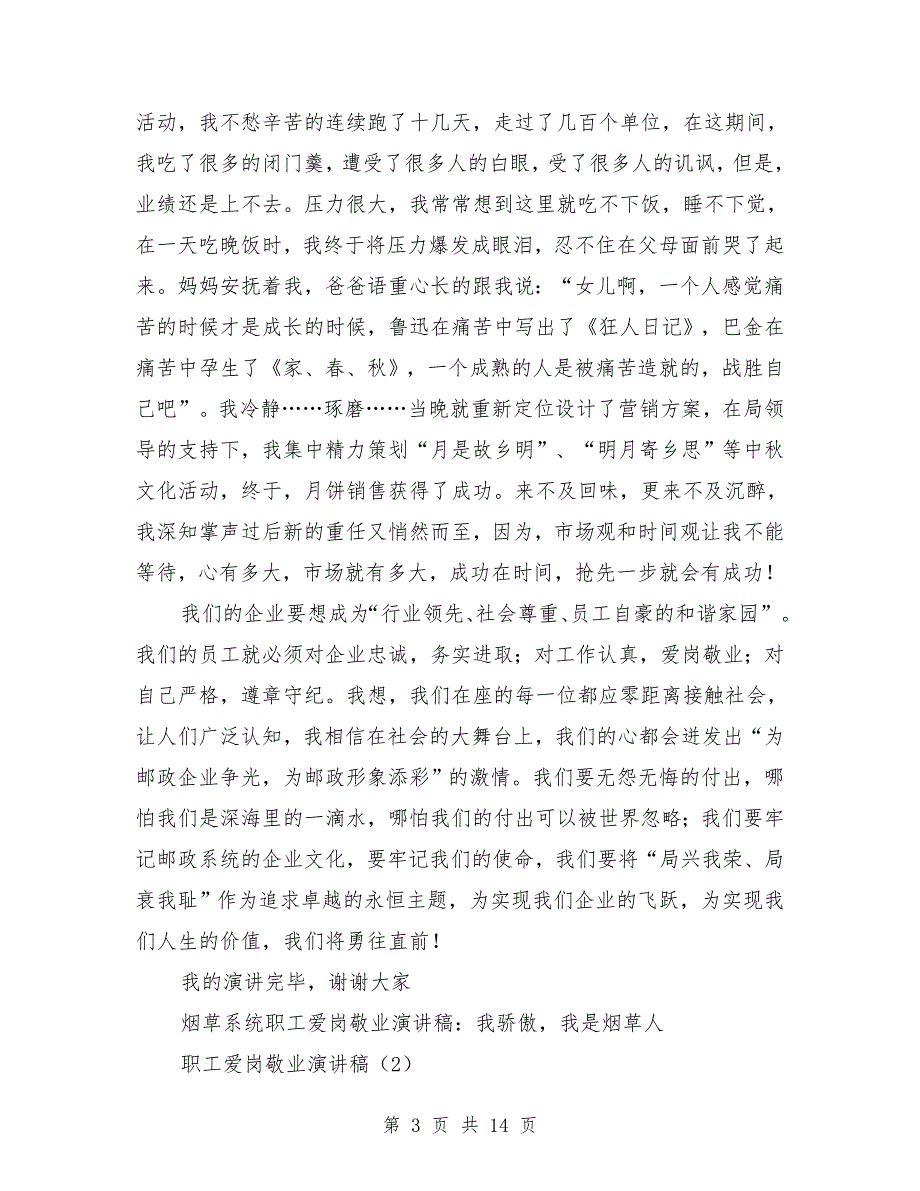 活动，我不愁辛苦的连续跑了十几天，走过了几百个单位，在这期间，
我吃了很多的闭门羹，遭受了很多人的白眼，受了很多人的讥讽，但是，
业绩还是上不去。压力很大，我常常想到这里就吃不下饭，睡不下觉，
在一天吃晚饭时，我终于将压力爆发成眼泪，忍不住在父母面前哭了起
来。妈妈安抚着我，爸爸语重心长的跟我说：“女儿啊，一个人感觉痛
苦的时候才是成长的时候，鲁迅在痛苦中写出了《狂人日记》，巴金在
痛苦中孕生了《家、春、秋》，一个成熟的人是被痛苦造就的，战胜自
己吧”。我冷静……琢磨……当晚就重新定位设计了营销方案，在局领
导的支持下，我集中精力策划“月是故乡明”、“明月寄乡思”等中秋
文化活动，终于，月饼销售获得了成功。来不及回味，更来不及沉醉，
我深知掌声过后新的重任又悄然而至，因为，市场观和时间观让我不能
等待，心有多大，市场就有多大，成功在时间，抢先一步就会有成功！
我们的企业要想成为“行业领先、社会尊重、员工自豪的和谐家园”。
我们的员工就必须对企业忠诚，务实进取；对工作认真，爱岗敬业；对
自己严格，遵章守纪。我想，我们在座的每一位都应零距离接触社会，
让人们广泛认知，我相信在社会的大舞台上，我们的心都会迸发出“为
邮政企业争光，为邮政形象添彩”的激情。我们要无怨无悔的付出，哪
怕我们是深海里的一滴水，哪怕我们的付出可以被世界忽略；我们要牢
记邮政系统的企业文化，要牢记我们的使命，我们要将“局兴我荣、局
衰我耻”作为追求卓越的永恒主题，为实现我们企业的飞跃，为实现我
们人生的价值，我们将勇往直前！
我的演讲完毕，谢谢大家
烟草系统职工爱岗敬业演讲稿：我骄傲，我是烟草人
职工爱岗敬业演讲稿（2）
第 3 页 共 14 页